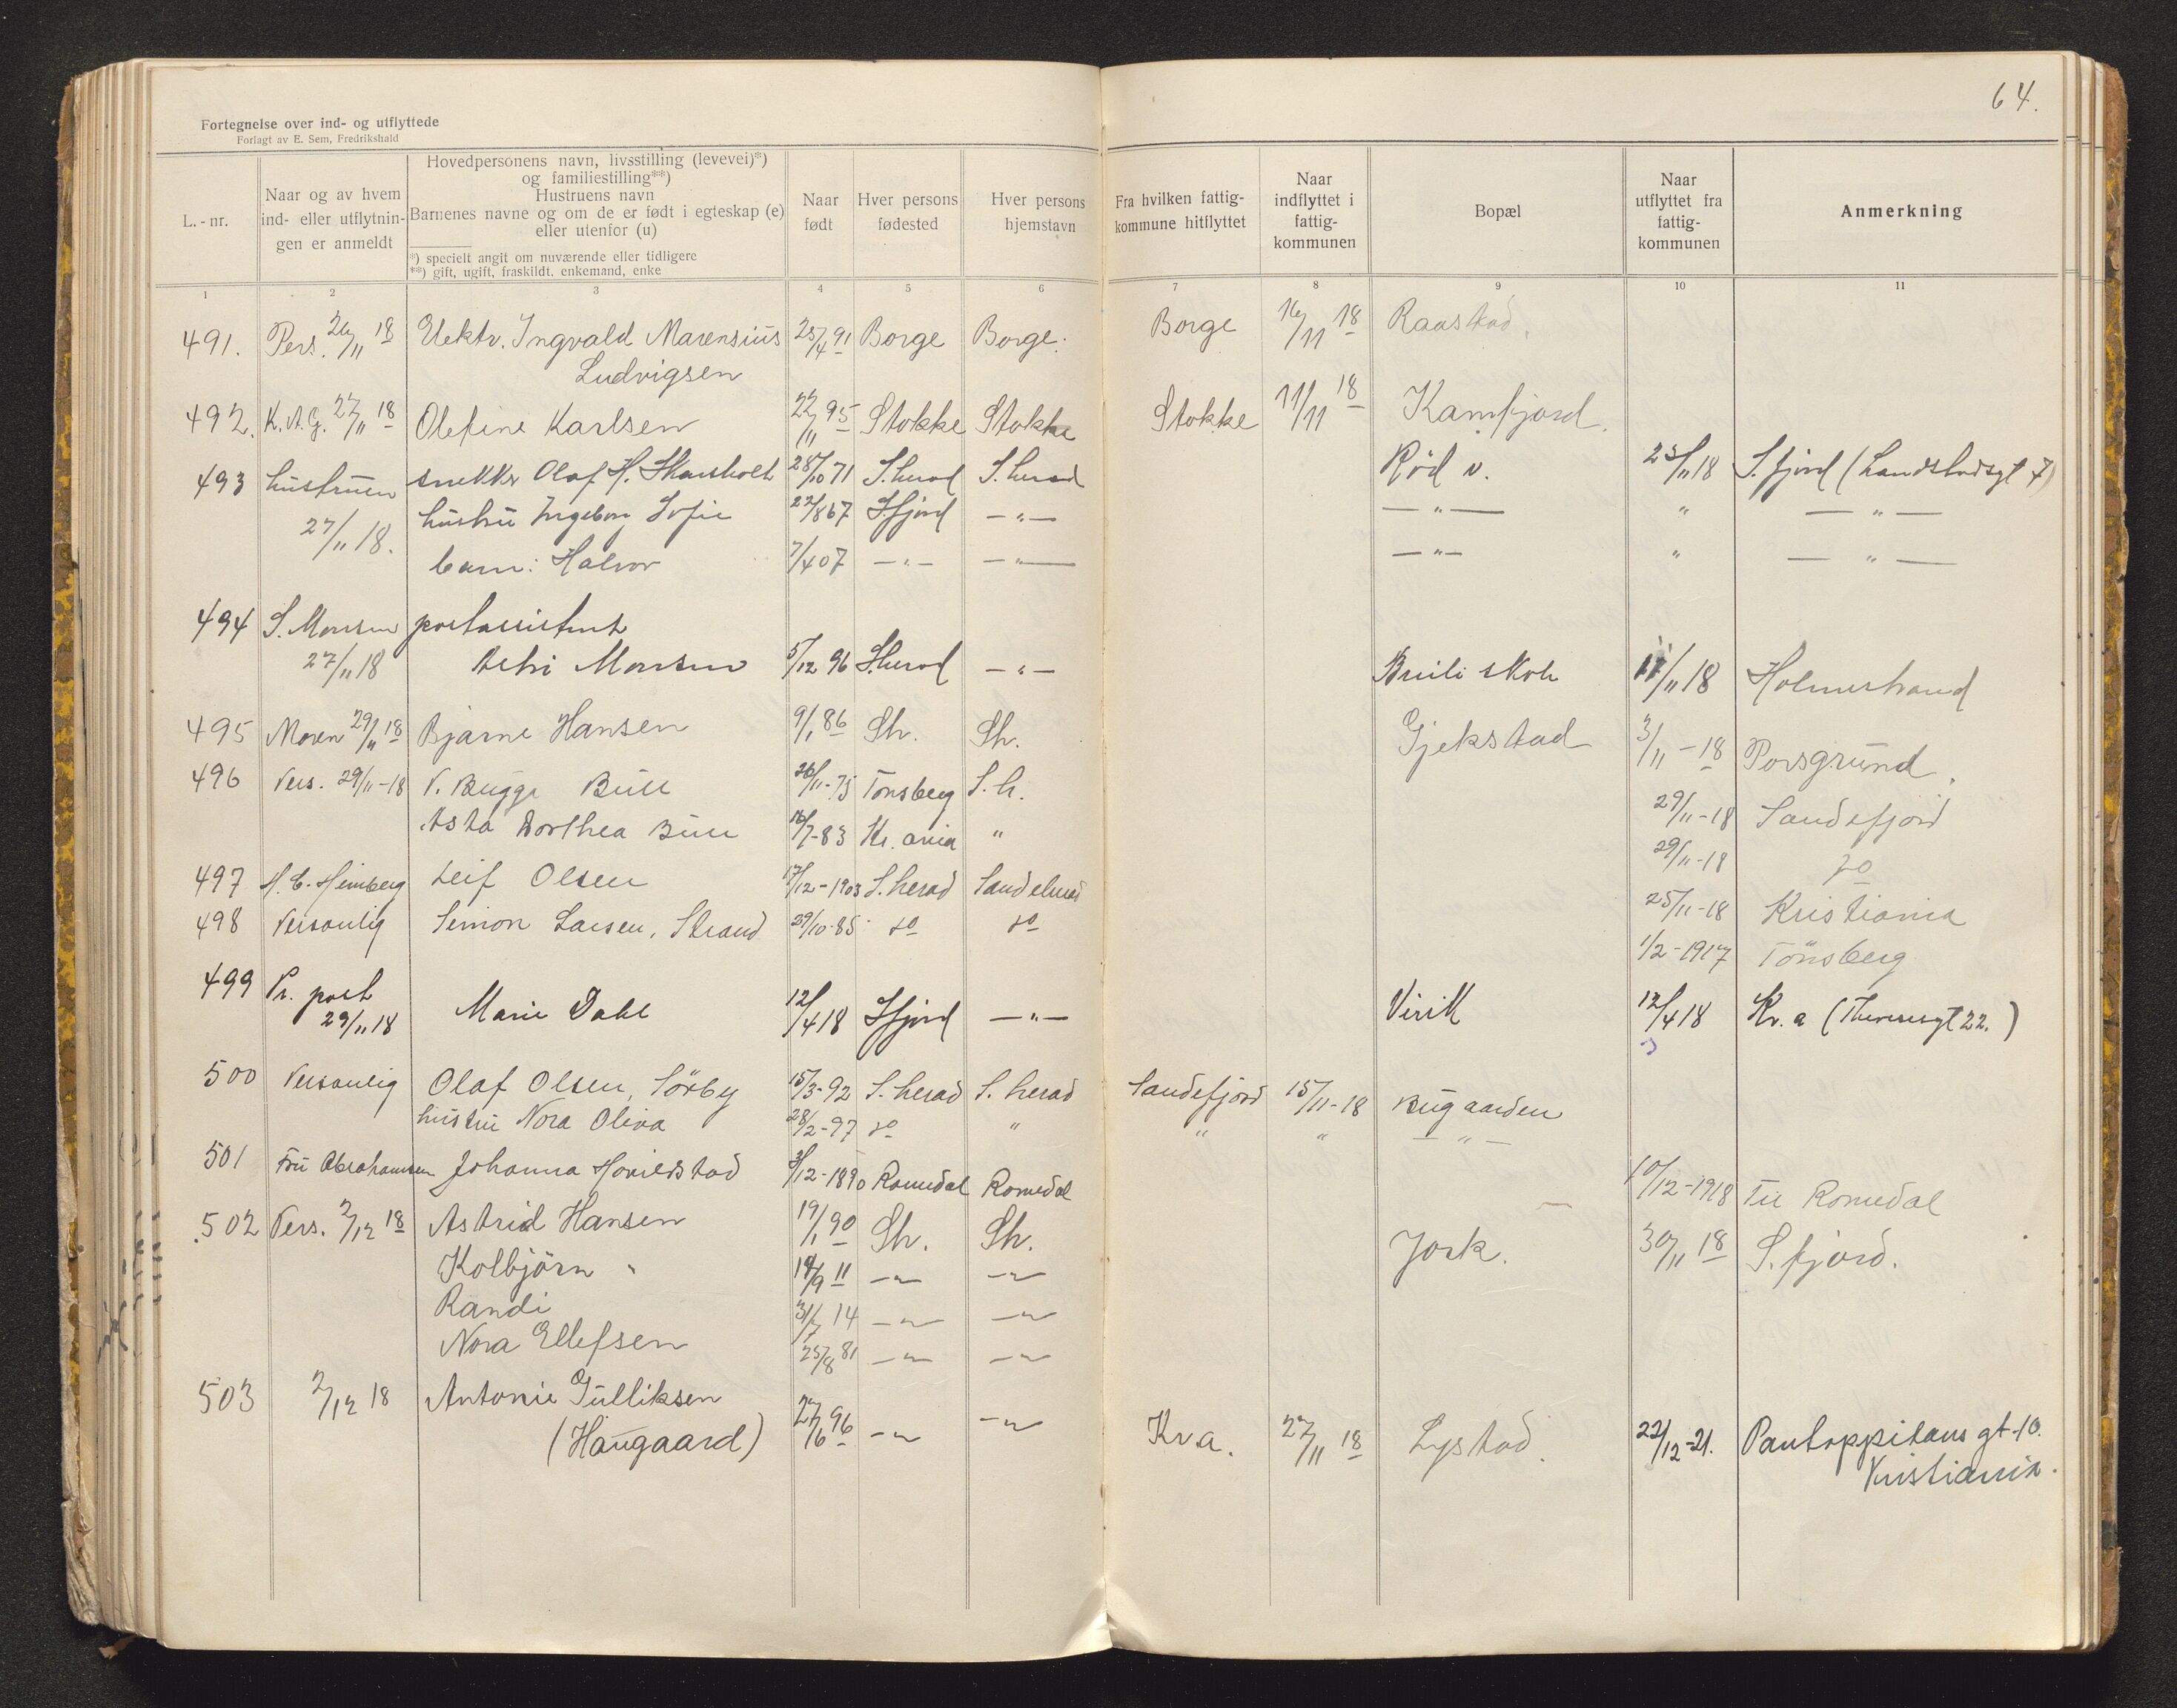 64.
Fortegnelse over ind- og utflyttede
Forlagt av E. Sem, Fredrikshald
L.-nr.
Naar og av hvem ind- eller utflytningen er anmeldt
Hovedpersonens navn, livsstilling (levevei)*)
og familiestilling**)
Hustruens navn
Barnenes navne og om de er født i egteskap (e)
eller utenfor (u)
*) specielt angit om nuværende eller tidligere
**) gift, ugift, fraskildt, enkemand, enke
Naar født
Hver persons fødested
Hver persons hjemstavn
Fra hvilken fattigkommune hitflyttet
Naar indflyttet i fattigkommunen
Bopæl
Naar utflyttet fra fattigkommunen
Anmerkning
1 2 3 4 5 6 7 8 9 10 11
491. Pers. 26/11 18 Elektr. Ingvald Marensius 25/4 91 Borge Borge. Borge 16/11 18 Raastad.
Ludvigsen
492. K.A.G. 27/11 18 Olefine Karlsen 22/11 95 Stokke Stokke Stokke 11/11 18 Kamfjord.
493 hustruen snekker Olaf H. 28/10 71 S.herad S.herad Rød v. 23/11 18 S.fjord (Landstadsgt 7)
27/11 18. hustru Ingeborg Sofie 22/8 67 Sfjord — " — — " — " — " —
barn: Halvor 7/4 07 — " — — " — — " — " — " —
494 S. Monsen postassistent
27/11 18 Monsen 5/12 96 S.herad — " — skole 11/11 18 Holmestrand
495 Moren 29/11 18 Bjarne Hansen 9/1 86 Sh. Sh. Gjekstad 3/11 - 18 Porsgrund.
496 Pers. 29/11-18 N. Bugge Bull 26/11-75 Tönsberg S.h. 29/11-18 Sandefjord
Asta Dorthea Bull 16/7-83 Kr.ania " 29/11-18 do
497 H.C. Heimberg Leif Olsen 17/12-1903 S.herad Sandeherad 25/11-18 Kristiania
498 Personlig Simon Larsen, Strand 29/10-85 do do 1/2-1917 Tönsberg
499 Pr. post
29/11 18 Marie Dahl 12/4 18 Sfjord — " — Virik 12/4 18 Kr.a (Theresesgt 22.)
500 Personlig Olaf Olsen, Sörby 15/3-92 S.herad S.herad Sandefjord 15/11-18 Bugaarden
hustru Nora Oliva 28/2-97 do " " " — " —
501 Fru Abrahamsen Johanna 3/12-1890 Romedal Romedal — 10/12-1918 Til Romedal
502 Pers. 2/12 18 Astrid Hansen 19/1 90 Sh. Sh. Jork. 30/11 18 S.fjord.
Kolbjörn " 19/9 11 — " — — " —
Randi 31/7 14 — " — — " —
Nora Ellefsen 25/8 81 — " — — " —
503 2/12 18 Antonie Gulliksen
(Haugaard) 27/6 96 — " — — " — Kr.a. 27/11 18 Lystad. 22/12-21. Pantoppitans gt-10.
Kristiania.